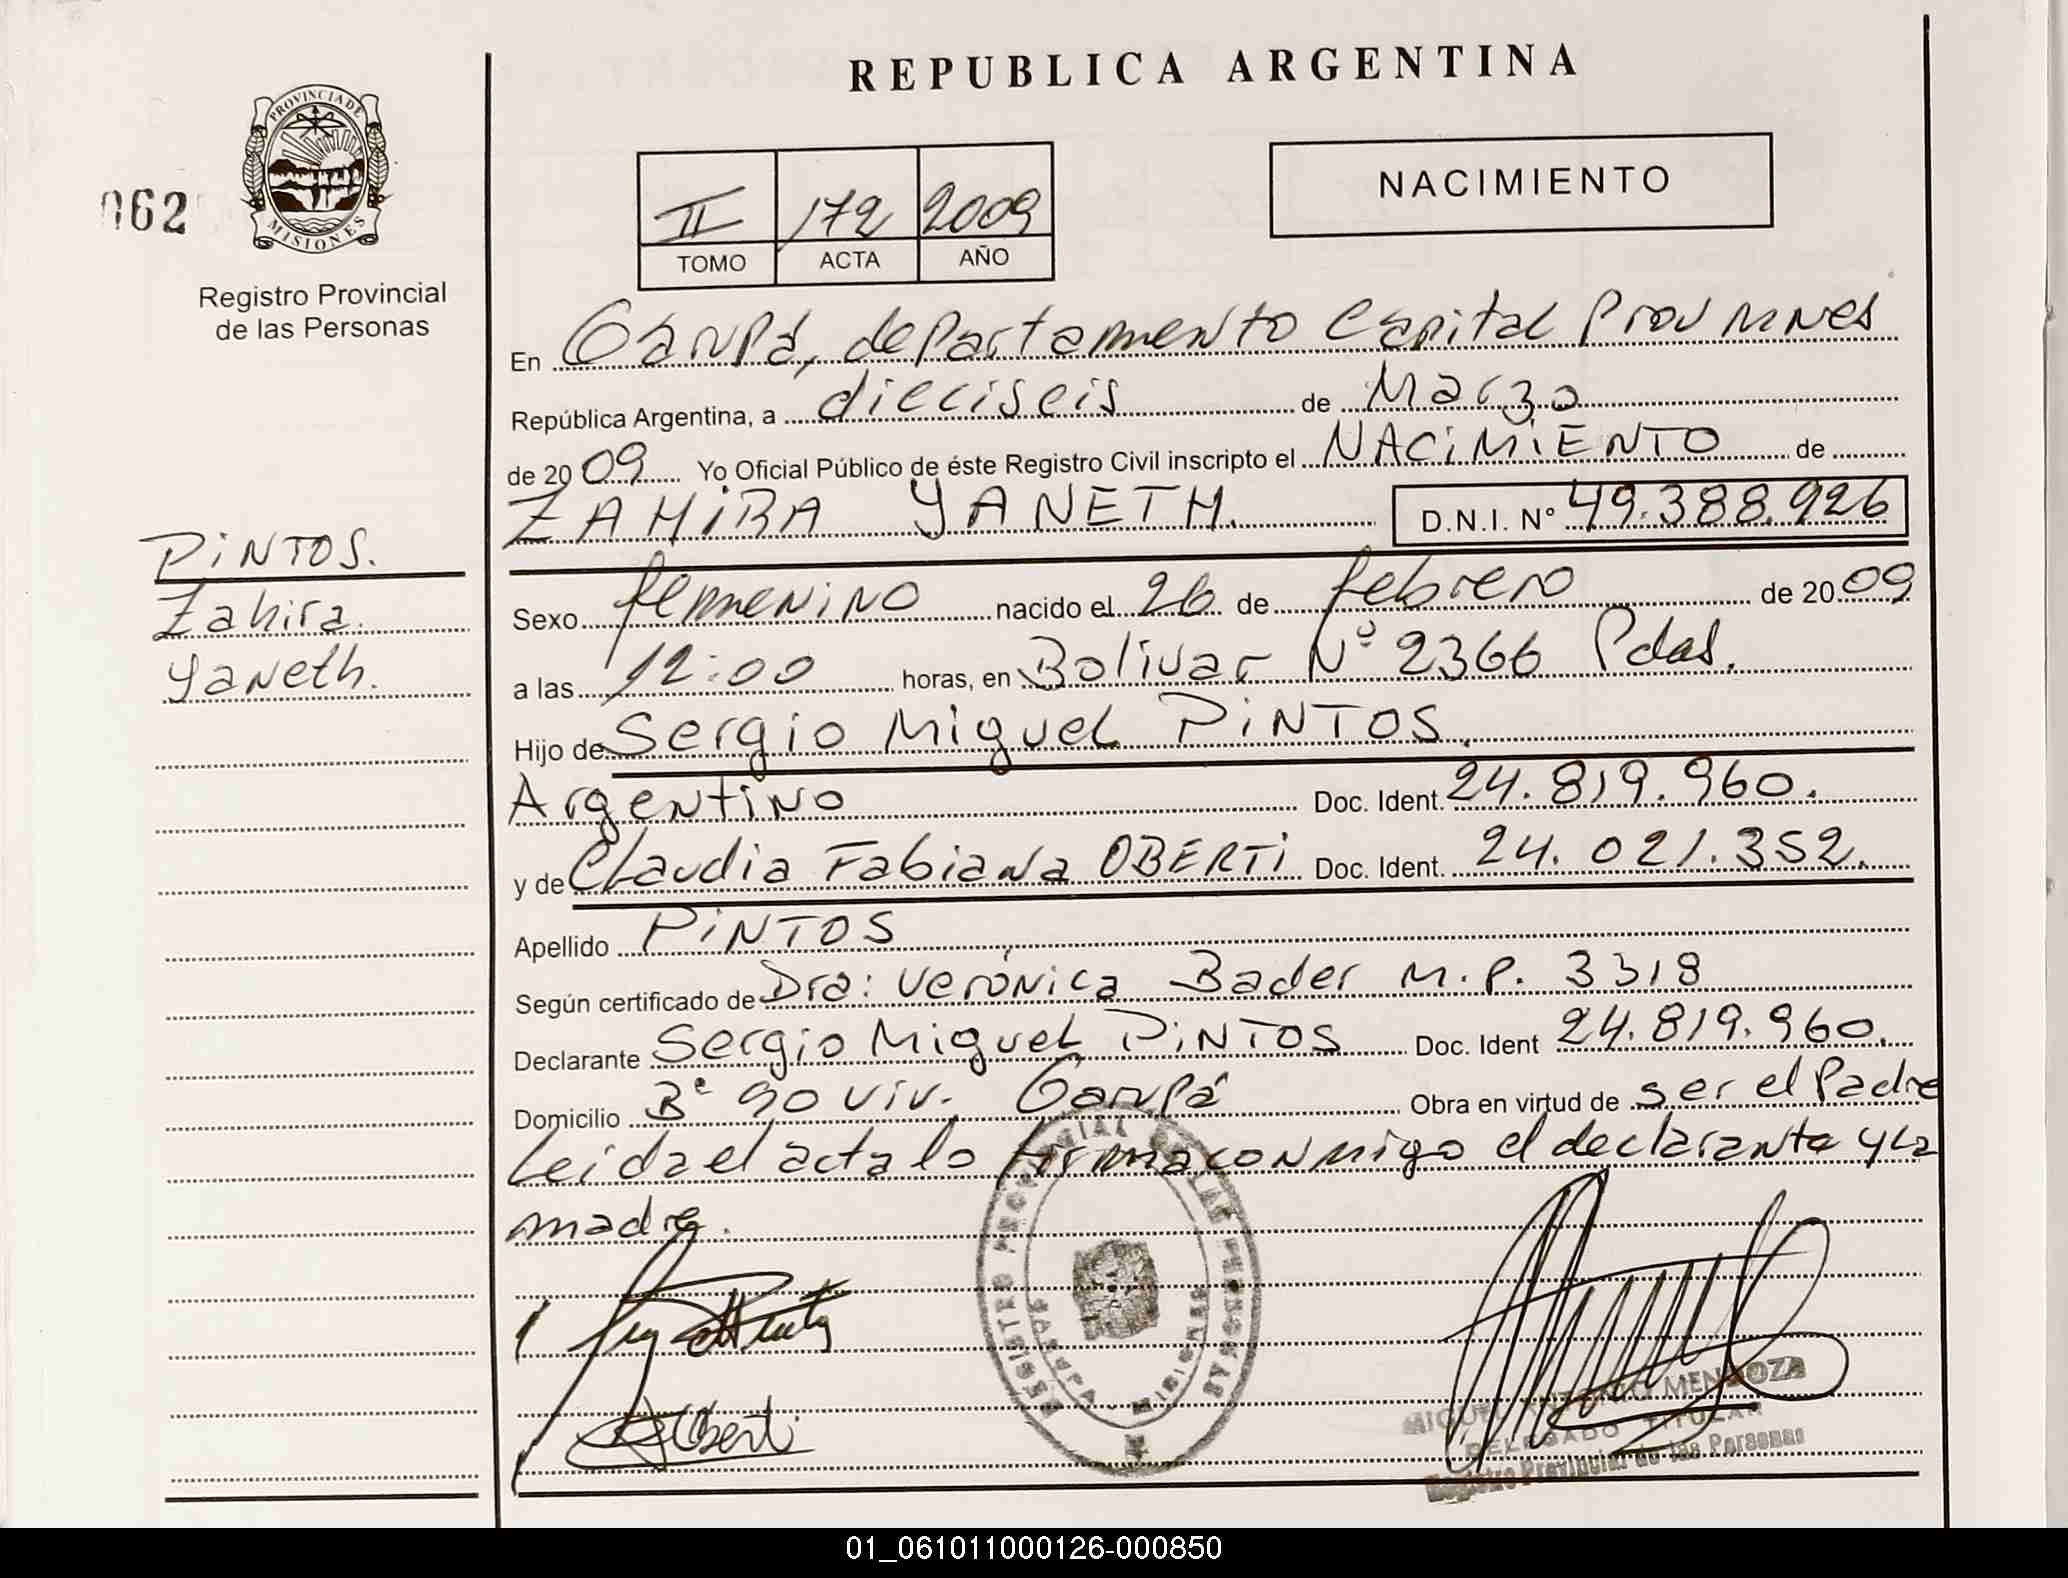 REPUBLICA ARGENTINA
PROVINCIA DE
MISIONES
062
Registro Provincial
de las Personas
II 172 2009
TOMO ACTA AÑO
NACIMIENTO
En Garupá, departamento Capital Prov Mnes
República Argentina, a dieciseis de Marzo
de 2009 Yo Oficial Público de éste Registro Civil inscripto el NACIMIENTO de
ZAHIRA YANETH. D.N.I. Nº 49.388.926
PINTOS.
Zahira.
Yaneth.
Sexo femenino nacido el 26 de febrero de 2009
a las 12:00 horas, en Bolivar Nº 2366 Pdas.
Hijo de Sergio Miguel PINTOS.
Argentino Doc. Ident. 24.819.960.
y de Claudia Fabiana OBERTI Doc. Ident. 24.021.352.
Apellido PINTOS
Según certificado de Dra: Verónica Bader M.P. 3318
Declarante Sergio Miguel PINTOS Doc. Ident 24.819.960.
Domicilio Bº 90 viv. Garupá Obra en virtud de ser el Padre
Leida el acta lo firma conmigo el declarante y la
madre.
REGISTRO PROVINCIAL DE LAS PERSONAS
GARUPA - MISIONES
Oberti
MIGUEL ANTONIO MENDOZA
DELEGADO TITULAR
Registro Provincial de las Personas
01_061011000126-000850